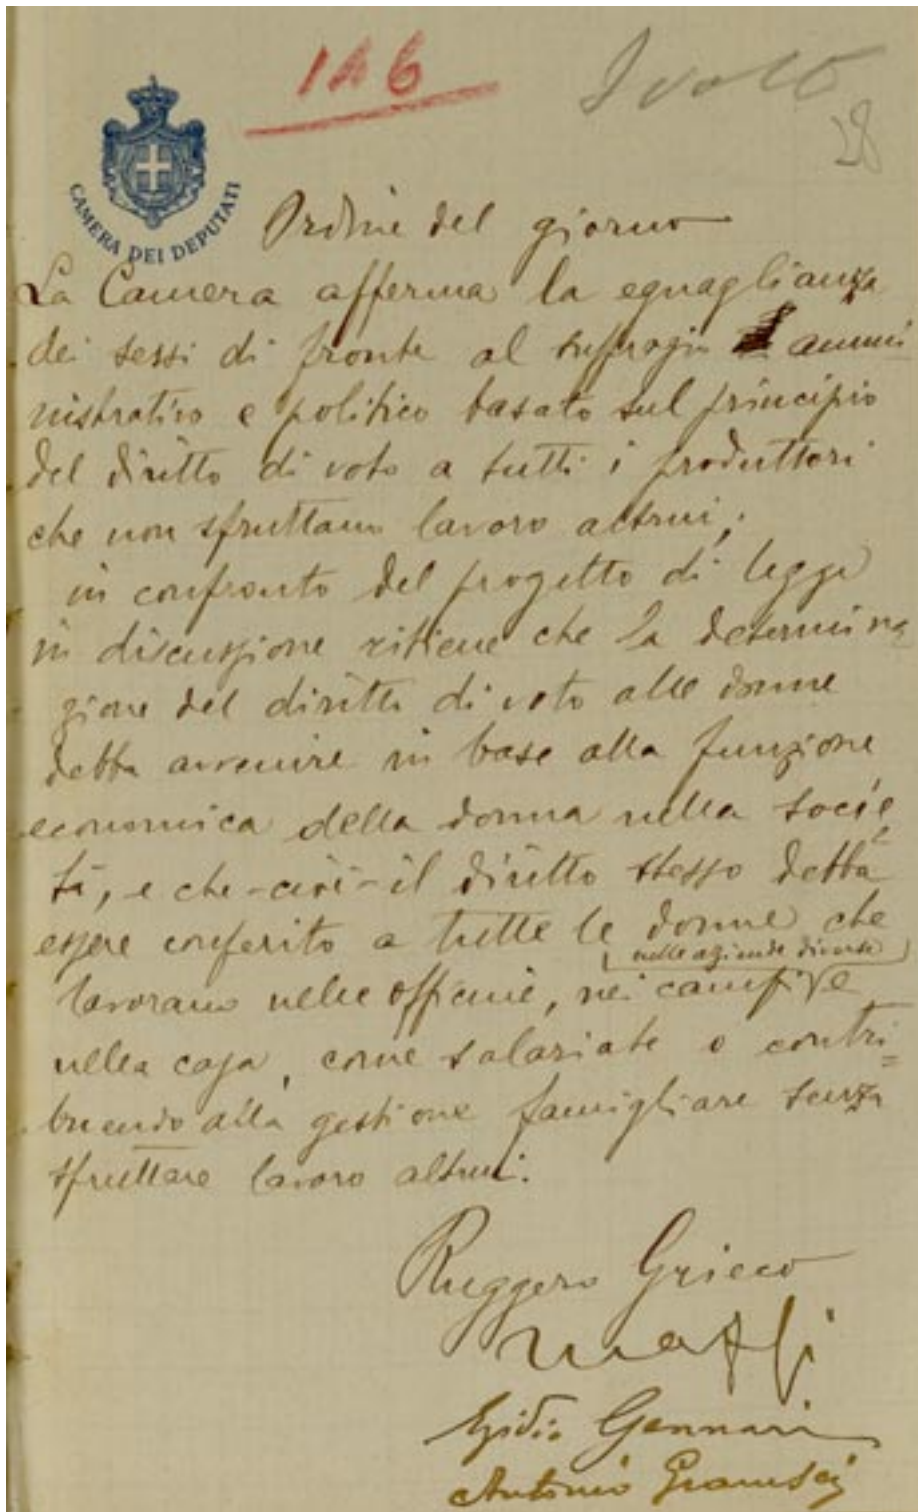 146
Svolto
28
CAMERA DEI DEPUTATI
Ordine del giorno
La Camera afferma la eguaglianza
dei sessi di fronte al suffragio ammi
nistrativo e politico basato sul principio
del diritto di voto a tutti i produttori
che non sfruttano lavoro altrui;
in confronto del progetto di legge
in discussione ritiene che la determina
zione del diritto di voto alle donne
debba avvenire in base alla funzione
economica della donna nella socie
tà, e che - cioè - il diritto stesso debba
essere conferito a tutte le donne che
nelle aziende diverse
lavorano nelle officine, nei campi, e
nella casa, come salariate o contri=
buendo alla gestione famigliare senza
sfruttare lavoro altrui.
Ruggero Grieco
Maffi
Egidio Gennari
Antonio Gramsci